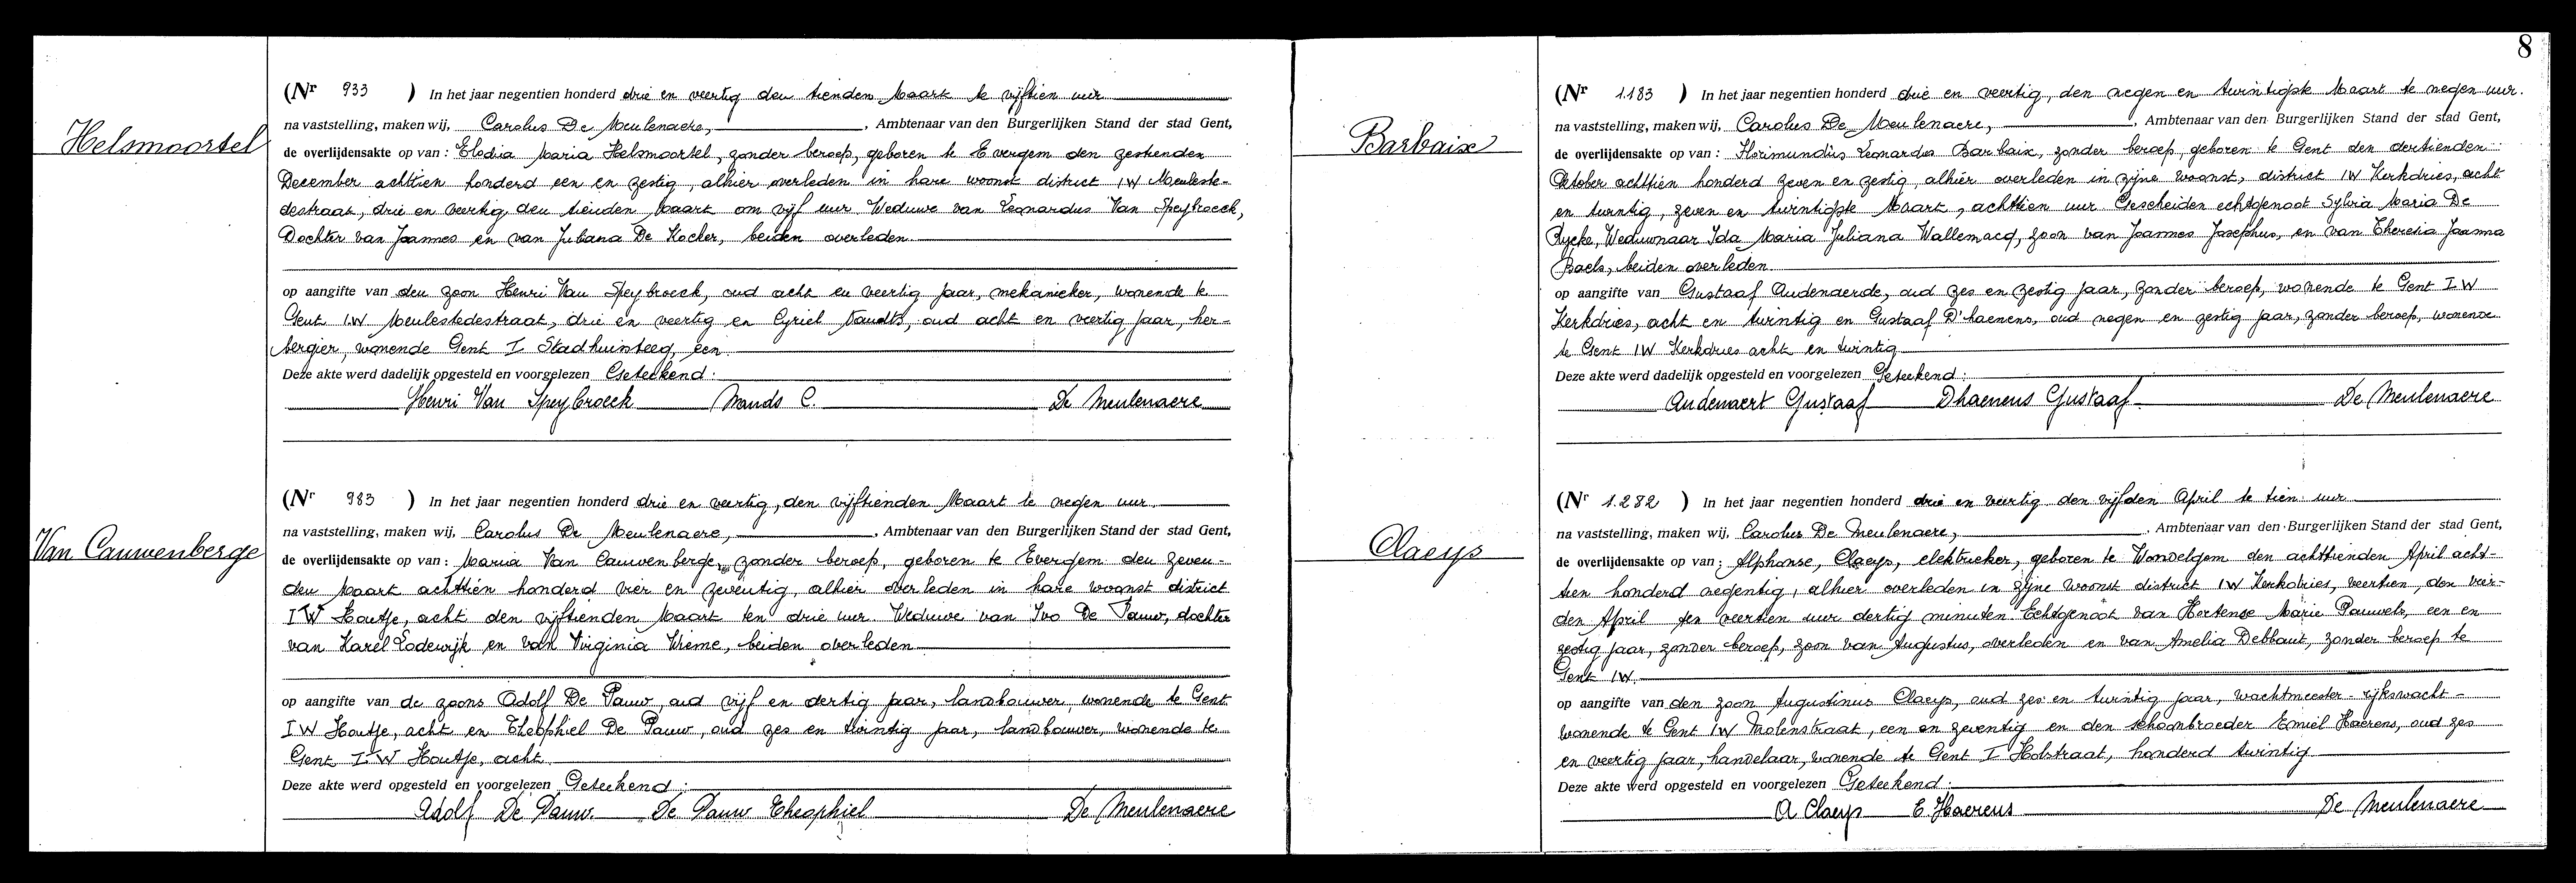 Helsmoortel
(Nr 933 ) In het jaar negentien honderd drie en veertig den tienden Maart te vijftien uur
na vaststelling, maken wij, Carolus De Meulenaere, , Ambtenaar van den Burgerlijken Stand der stad Gent,
de overlijdensakte op van : Elodia Maria Helsmoortel, zonder beroep, geboren te Evergem den zestienden
December achttien honderd een en zestig, alhier overleden in hare woonst district IW Meuleste-
destraat, drie en veertig den tienden Maart om vijf uur Weduwe van Leonardus Van Speybroeck,
Dochter van Joannes en van Juliana De Kocker, beiden overleden
op aangifte van den zoon Henri Van Speybroeck, oud acht en veertig jaar, mekanieker, wonende te
Gent IW Meulestedestraat, drie en veertig en Cyriel Naudts, oud acht en veertig jaar, her-
bergier, wonende Gent I Stadhuissteeg, een
Deze akte werd dadelijk opgesteld en voorgelezen Geteekend :
Henri Van Speybroeck C. De Meulenaere
Van Cauwenberge
(Nr 983 ) In het jaar negentien honderd drie en veertig, den vijftienden Maart te negen uur
na vaststelling, maken wij, Carolus De Meulenaere, , Ambtenaar van den Burgerlijken Stand der stad Gent,
de overlijdensakte op van : Maria Van Cauwenberge, zonder beroep, geboren te Evergem den zeven-
den Maart achttien honderd vier en zeventig, alhier overleden in hare woonst district
IW Houtje, acht den vijftienden Maart ten drie uur Weduwe van Ivo De Pauw, dochter
van Karel Lodewijk en van Virginia Wieme, beiden overleden
op aangifte van de zoons Adolf De Pauw, oud vijf en dertig jaar, landbouwer, wonende te Gent
IW Houtje, acht en Theophiel De Pauw, oud zes en twintig jaar, landbouwer, wonende te
Gent IW Houtje, acht
Deze akte werd opgesteld en voorgelezen Geteekend :
Adolf De Pauw. De Pauw Theophiel De Meulenaere
8
Barbaix
(Nr 1.183 ) In het jaar negentien honderd drie en veertig, den negen en twintigste Maart te negen uur.
na vaststelling, maken wij, Carolus De Meulenaere, , Ambtenaar van den Burgerlijken Stand der stad Gent,
de overlijdensakte op van : Florimundus Leonardus Barbaix, zonder beroep, geboren te Gent den dertienden
Oktober achttien honderd zeven en zestig, alhier overleden in zijne woonst, district IW Kerkdries, acht
en twintig, zeven en twintigste Maart, achttien uur Gescheiden echtgenoot Sylvia Maria De
Rycke, Weduwnaar Ida Maria Juliana Wallemacq, zoon van Joannes Josephus, en van Theresia Joanna
Baels, beiden overleden
op aangifte van Gustaaf Audenaerde, oud zes en zestig jaar, zonder beroep, wonende te Gent IW
Kerkdries, acht en twintig en Gustaaf D'haenens, oud negen en zestig jaar, zonder beroep, wonende
te Gent IW Kerkdries acht en twintig
Deze akte werd dadelijk opgesteld en voorgelezen Geteekend :
Audenaert Gustaaf Dhaenens Gustaaf De Meulenaere
Claeys
(Nr 1.282 ) In het jaar negentien honderd drie en veertig den vijfden April te tien uur
na vaststelling, maken wij, Carolus De Meulenaere, , Ambtenaar van den Burgerlijken Stand der stad Gent,
de overlijdensakte op van : Alphonse, Claeys, elektrieker, geboren te Wondelgem den achttienden April acht-
tien honderd negentig, alhier overleden in zijne woonst district IW Kerkdries, veertien, den vier-
den April ten veertien uur dertig minuten Echtgenoot van Hortense Marie Pauwels, een en
zestig jaar, zonder beroep, zoon van Augustus, overleden en van Amelia Debbaut, zonder beroep te
Gent IW.
op aangifte van den zoon Augustinus Claeys, oud zes en twintig jaar, wachtmeester - rijkswacht -
wonende te Gent IW Molenstraat, een en zeventig en den schoonbroeder Emiel Haerens, oud zes
en veertig jaar, handelaar, wonende te Gent I Holstraat, honderd twintig
Deze akte werd opgesteld en voorgelezen Geteekend :
A Claeys E. Haerens De Meulenaere